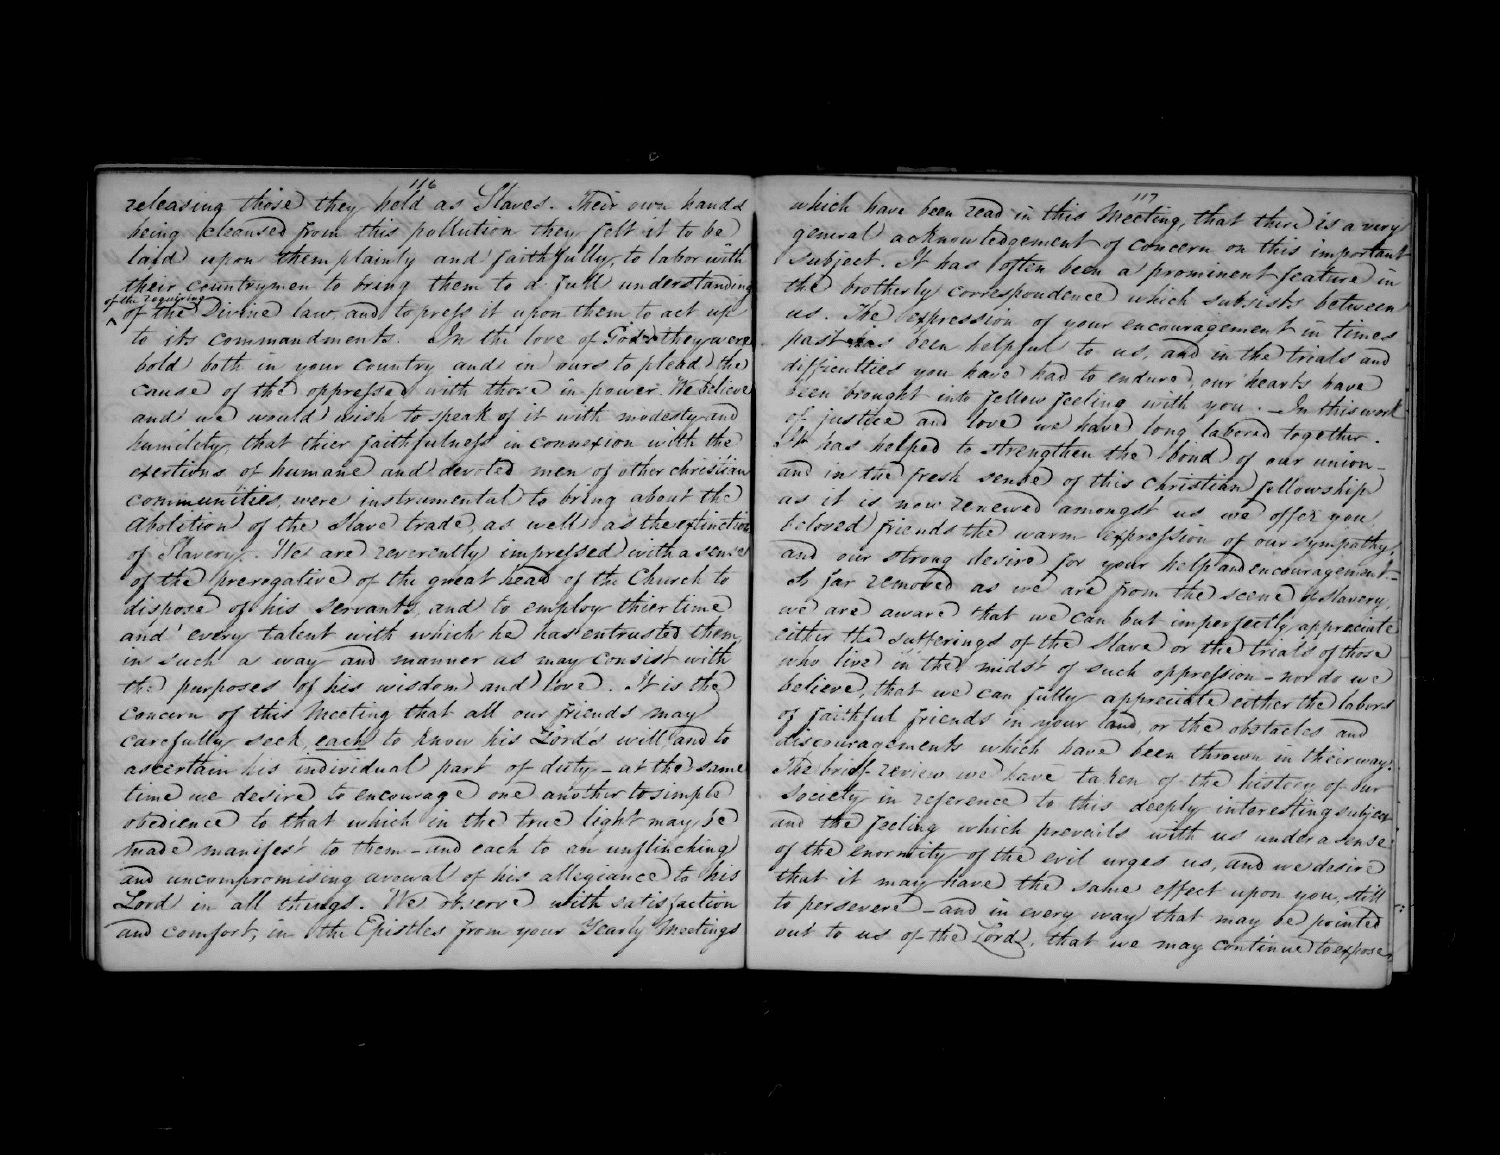 116
releasing those they held as Slaves. Their own hands
being cleansed from this pollution they felt it to be
laid upon them plainly and faithfully, to labor with
their countrymen to bring them to a full understanding
of the requirings
of the Divine law, and to press it upon them to act up
to its commandments. In the love of God they were
bold both in your Country and in ours to plead the
cause of the oppressed with those in power. We believe
and we would wish to speak of it with modesty and
humility, that thier faithfulness in connexion with the
exertions of humane and devoted men of other christian
communities, were instrumental to bring about the
Abolition of the Slave trade, as well as the extinction
of Slavery. We are reverently impressed with a sense
of the prerogative of the great head of the Church to
dispose of his servants, and to employ thier time
and every talent with which he has entrusted them,
in such a way and manner as may consist with
the purposes of his wisdom and love. It is the
concern of this Meeting that all our friends may
carefully seek, each to know his Lord's will, and to
ascertain his individual part of duty - at the same
time we desire to encourage one another to simple
obedience to that which in the true light may be
made manifest to them - and each to an unflinching
and uncompromising avowal of his allegiance to his
Lord in all things. We observe with satisfaction
and comfort, in the Epistles from your Yearly Meetings
117
which have been read in this Meeting, that there is a very
general acknowledgement of concern on this important
subject. It has often been a prominent feature in
the brotherly correspondence which subsists between
us. The expression of your encouragement in times
past has been helpful to us, and in the trials and
difficulties you have had to endure, our hearts have
been brought into fellow feeling with you. - In this work
of justice and love we have long labored together.
It has helped to strengthen the bond of our union -
and in the fresh sense of this Christian fellowship
as it is now renewed amongst us we offer you
beloved friends the warm expression of our sympathy,
and our strong desire for your help and encouragement -
So far removed as we are from the scene of slavery,
we are aware that we can but imperfectly appreciate
either the sufferings of the Slave or the trials of those
who live in the midst of such oppression - nor do we
believe, that we can fully appreciate either the labors
of faithful friends in your land, or the obstacles and
discouragements which have been thrown in their way.
The brief review we have taken of the history of our
Society in reference to this deeply interesting subject
and the feeling which prevails with us under a sense
of the enormity of the evil urges us, and we desire
that it may have the same effect upon you, still
to persevere - and in every way that may be pointed
out to us of the Lord, that we may continue to expose